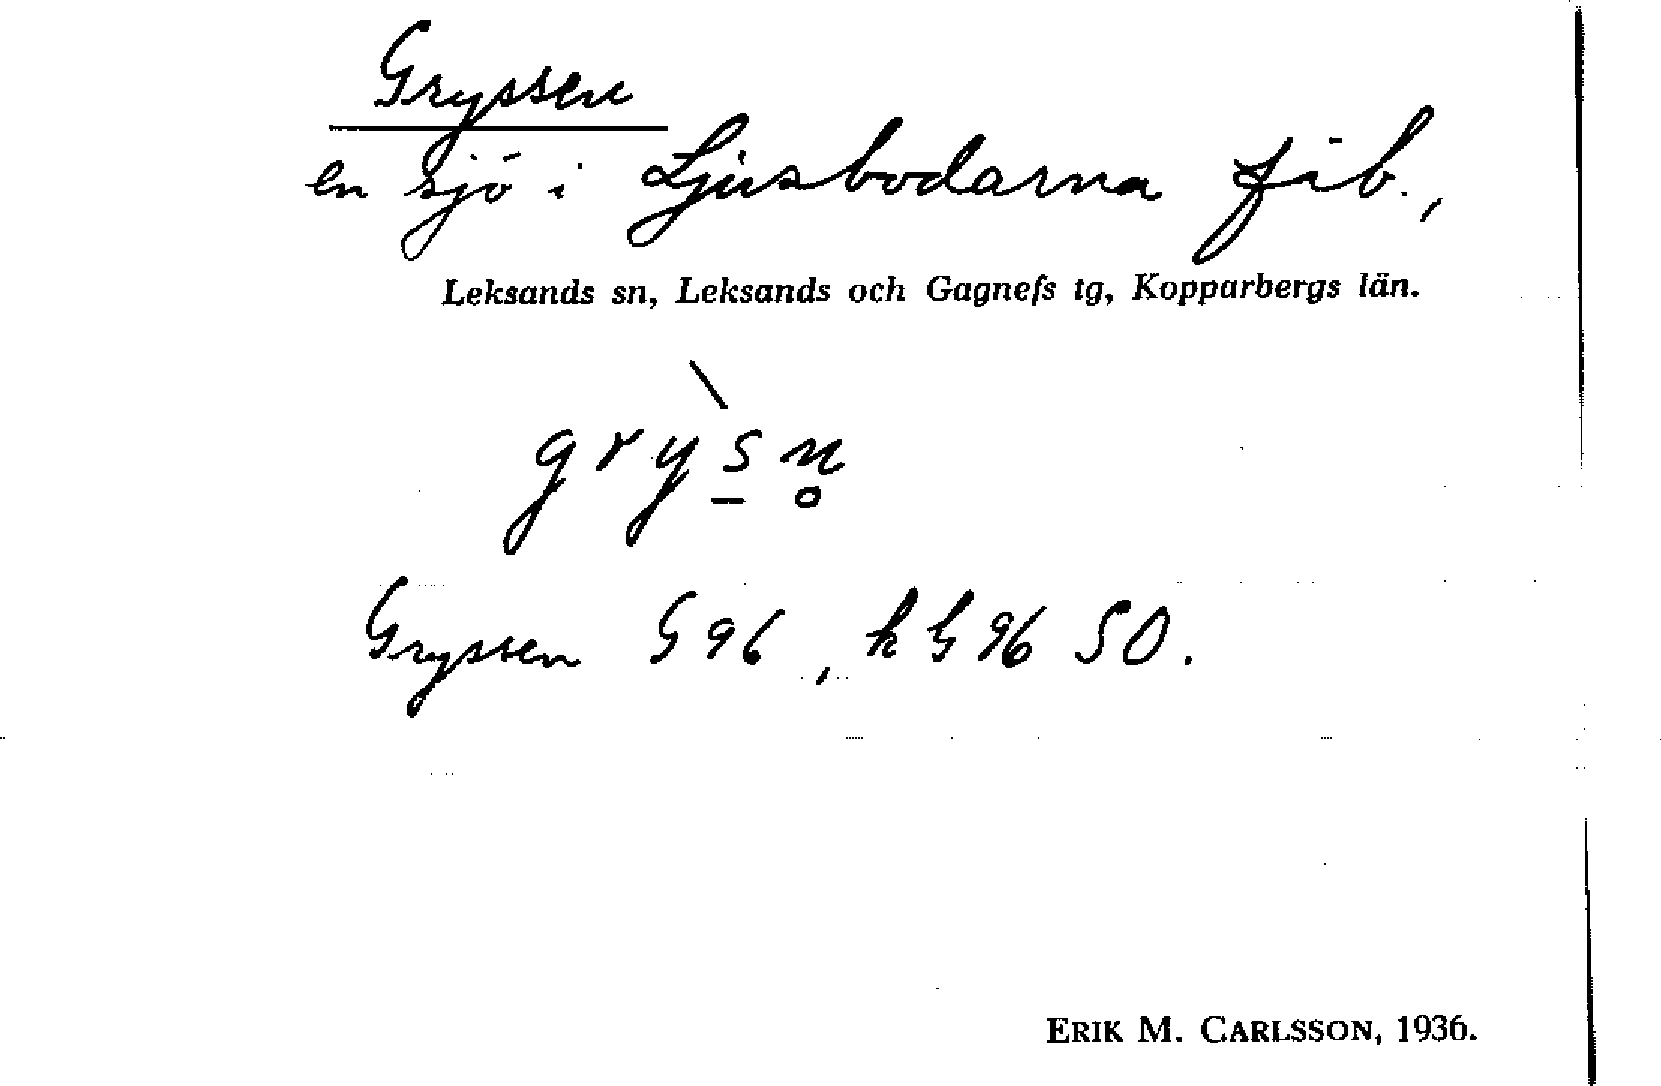 Gryssen
en sjö i Ljusbodarna fäb.,
Leksands sn, Leksands och Gagnefs tg, Kopparbergs län.
grys̠̀n̥
Gryssen G 96, k G 96 SO.
ERIK M. CARLSSON, 1936.